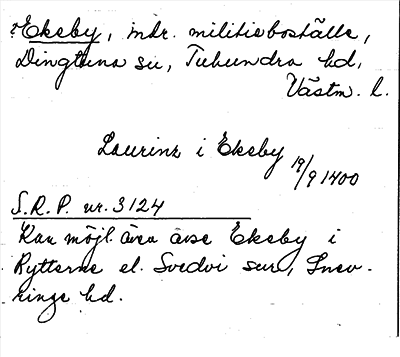 ?Eksby, mdr. militieboställe,
Dingtuna sn, Tuhundra hd,
Västm. l.
Laurinz i Eksby 19/9 1400
S.R.P. nr. 3124
Kan möjl. även avse Eksby i
Rytterne el. Svedvi snr, Snev-
ringe hd.